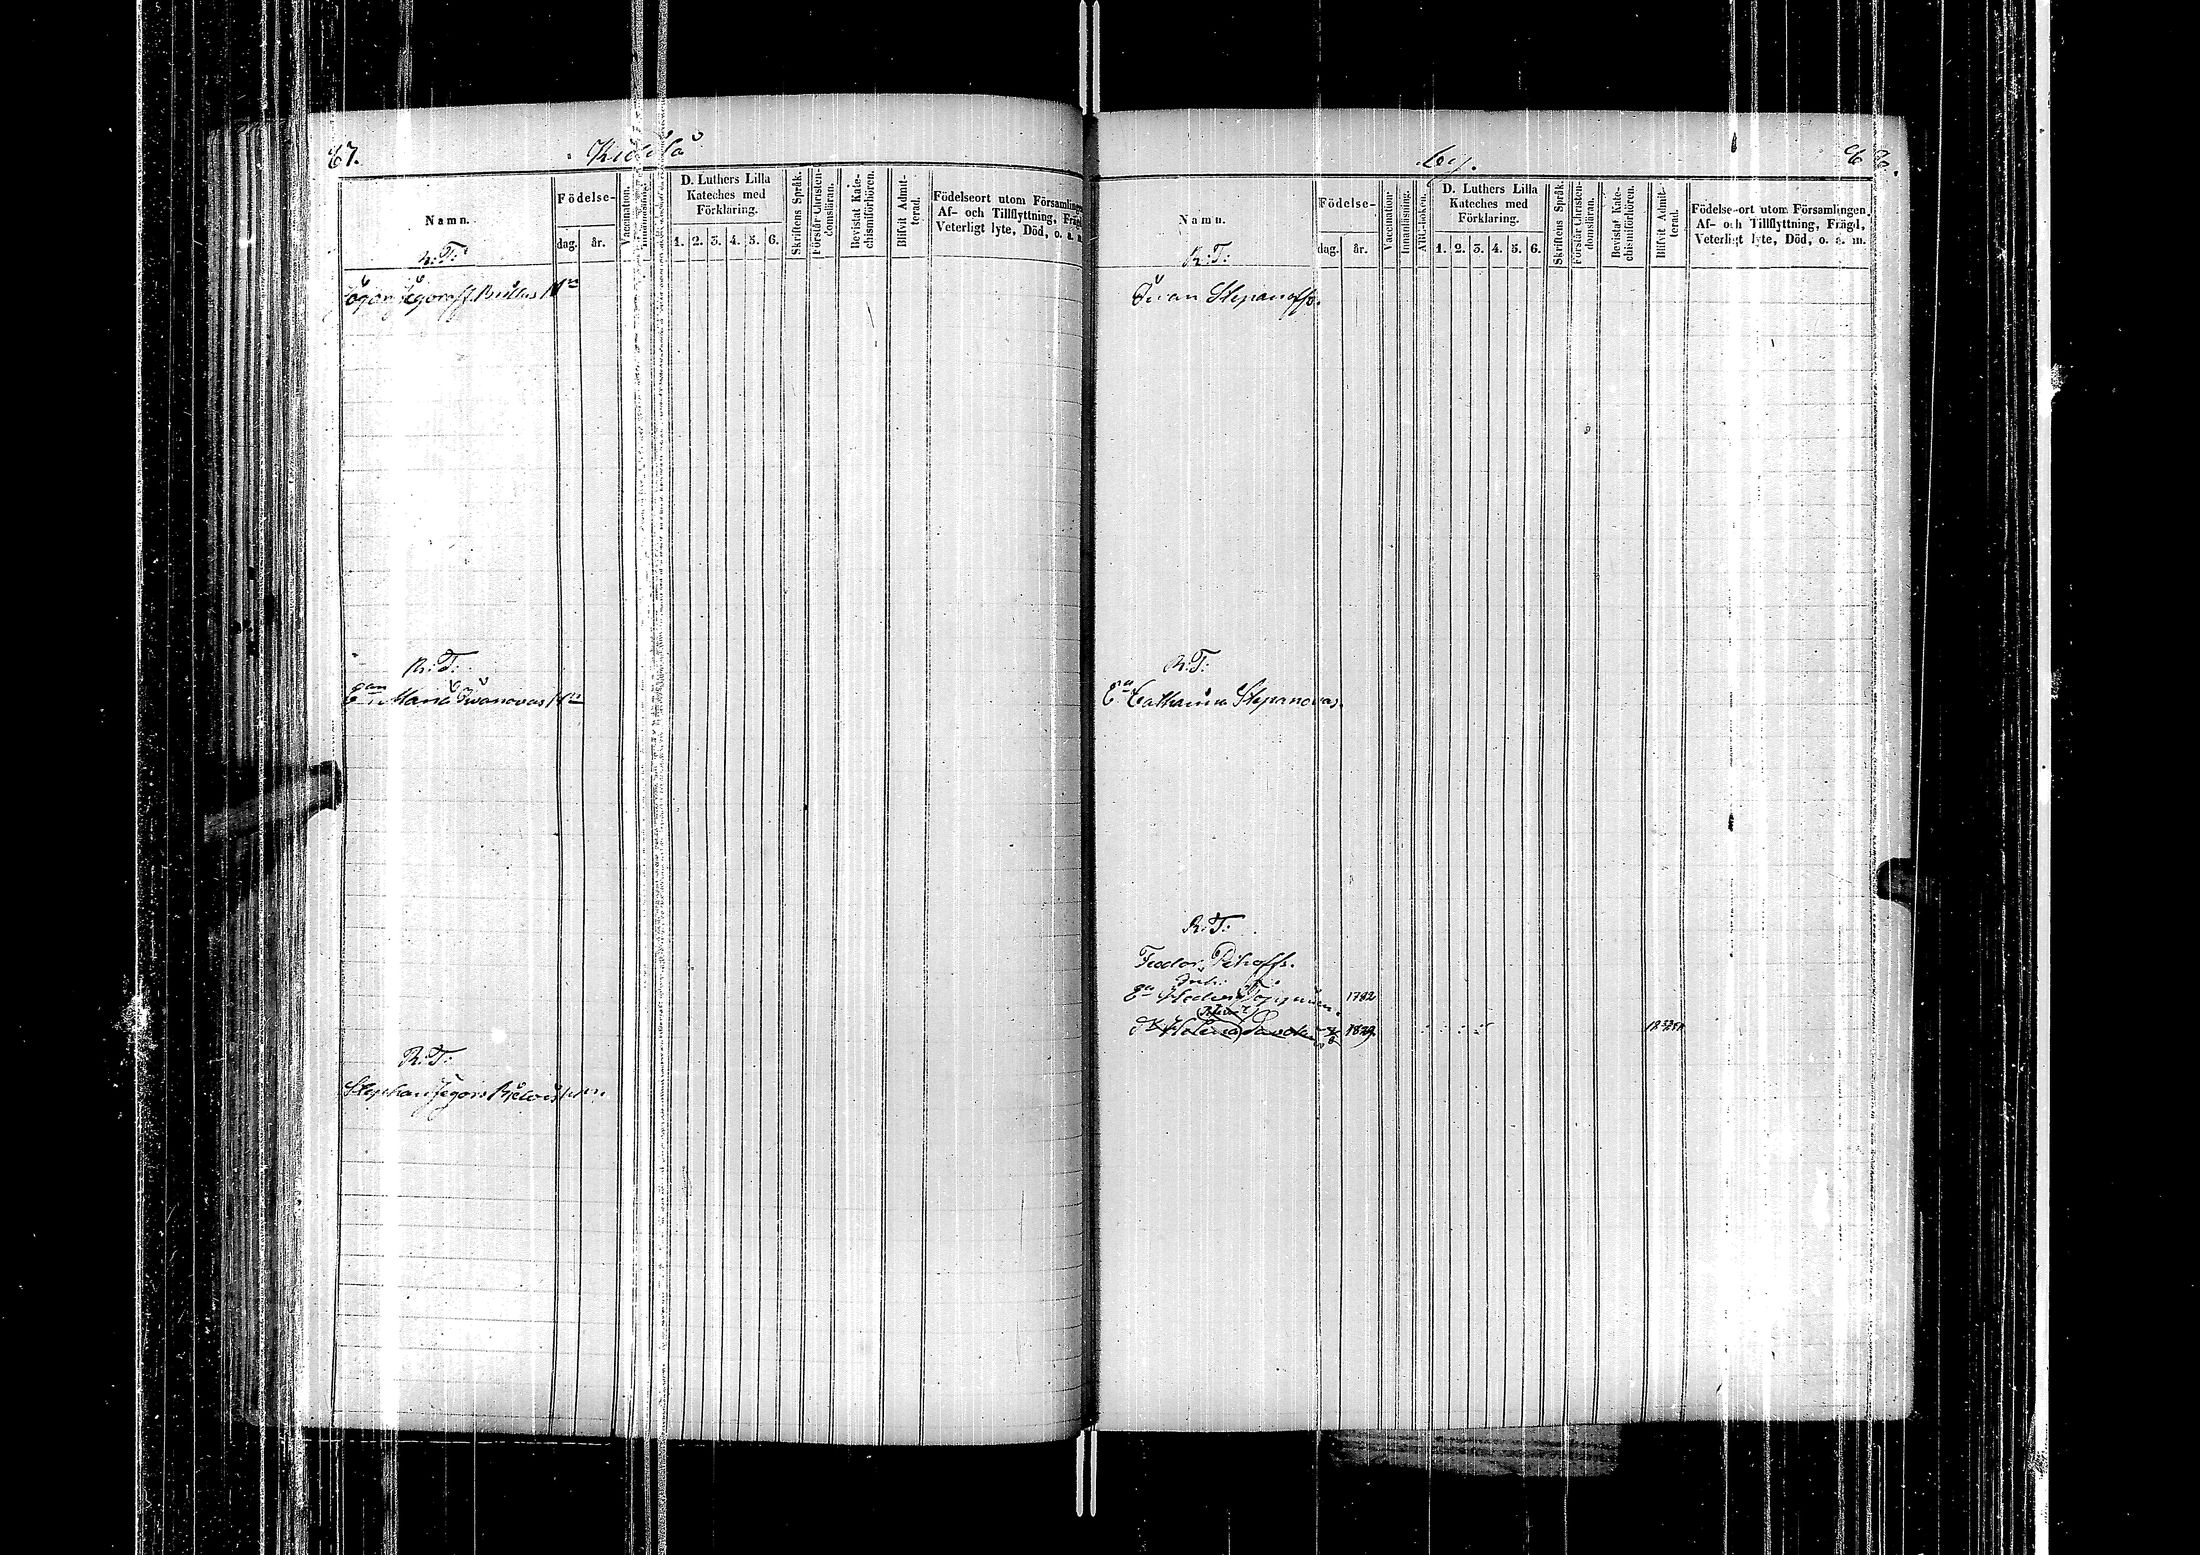 67.
Kidilä
Namn.
Födelse-
dag.
år.
Vaccination.
Innanläsning.
D. Luthers Lilla
Kateches med
Förklaring.
1. 2. 3. 4. 5. 6.
Skriftens Språk.
Förstår Christen-
domsläran.
Bevistat Kate-
chismiförhören.
Blifvit Admit-
terad.
Födelseort utom Församlingen,
Af- och Tillflyttning, Frägd,
Veterligt lyte, Död, o. a. m.
R:T:
Jegoroff
R:T:
Maria Ivanovas
R:T:
Stephan Jegors
by.
Namn.
Födelse-
dag.
år.
Vaccination.
Innanläsning.
A.B.C.-boken.
D. Luthers Lilla
Kateches med
Förklaring.
1. 2. 3. 4. 5. 6.
Skriftens Språk.
Förstår Christen-
domsläran.
Bevistat Kate-
chismiförhören.
Blifvit Admit-
terad.
Födelse-ort utom Församlingen,
Af- och Tillflyttning, Frägd,
Veterligt lyte, Död, o. a. m.
R:T:
Ivan Stepanoffs.
R:T:
Catharina Stepanovas
R:T:
Feodor Petroffs.
Inh:
1782
Helena 1829